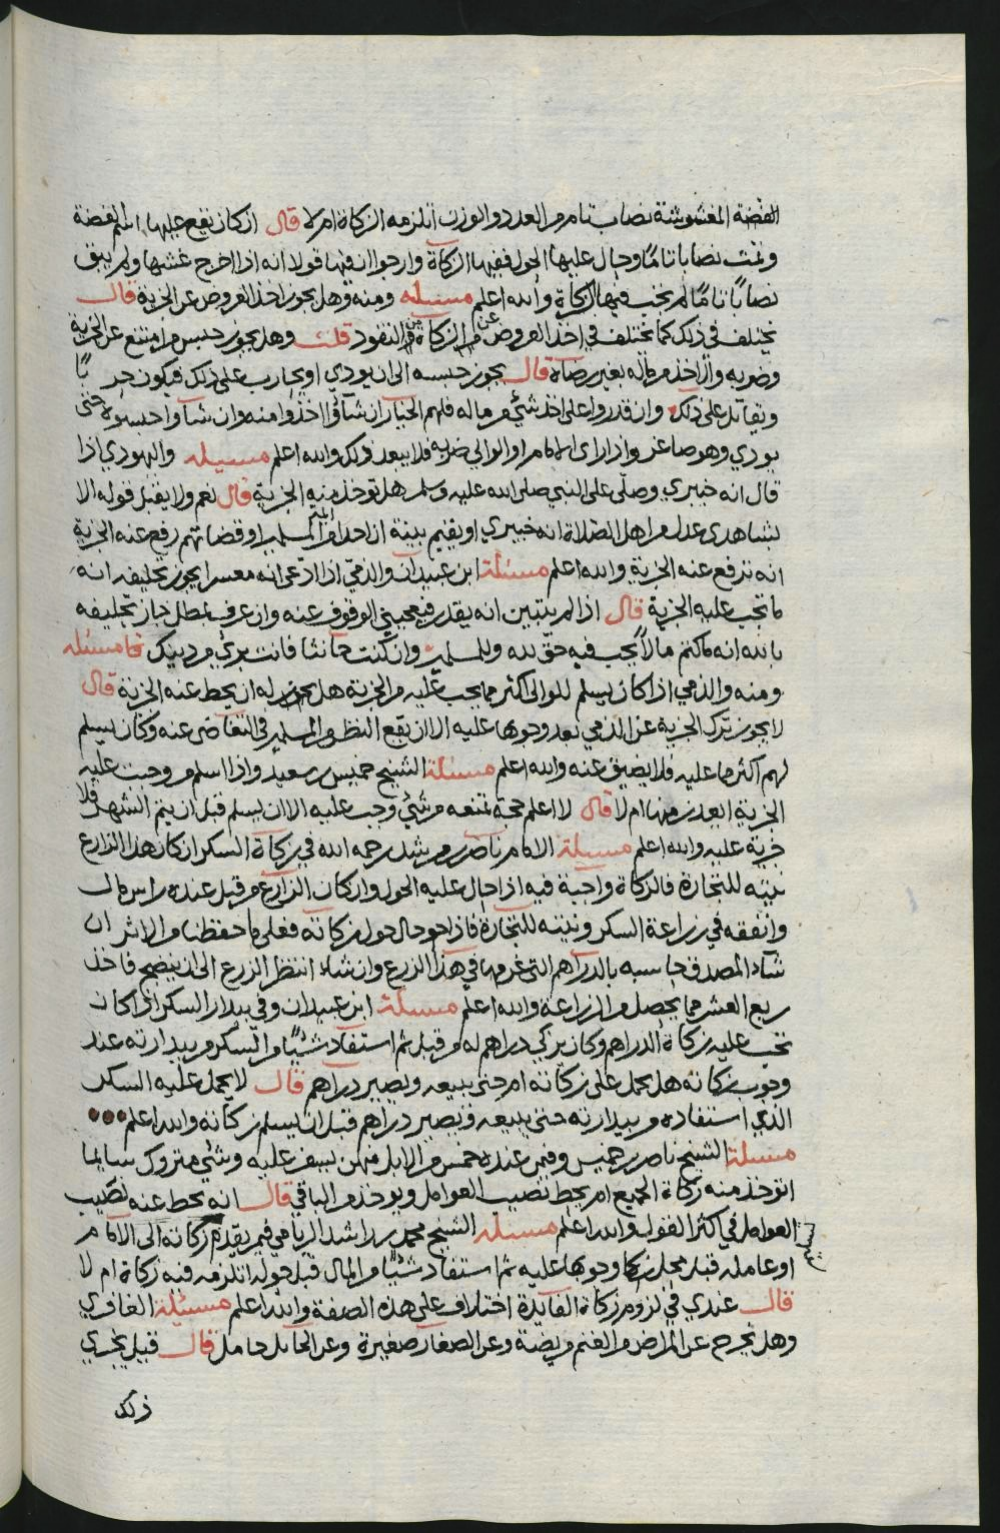 الفضة المغشوشة نصابا تاما من العدد والوزن اتلزمه الزكاة ام لا قال ان كان يقع عليها اسم الفضة
وتمت نصابا تامًا وحال عليها الحول ففيها الزكاة وارجوا ان فيها قولا انه اذا اخرج غشها ولم يبق
نصابًا تامًا لم تجب فيها الزكاة والله اعلم مسئله ومنه وهل يجوز اخذ العروض عن الجزية قال
يختلف في ذلك كما يختلف في اخذ العروض عن الزكاة من النقود قلت وهل يجوز حبس من امتنع عن الجزية
وضربه وان اخذ من ماله بغير رضاه قال يجوز حبسه الى ان يودي او يحارب على ذلك فيكون حربًا
ويقاتل على ذلك وان قدروا على اخذ شيء من ماله فلهم الخيار ان شآؤا اخذوا منه وان شآوا حبسوه حتى
يودي وهو صاغر واذا راى الامام او الوالي ضربه فلا يبعد ذلك والله اعلم مسيله واليهودي اذا
قال انه خيبري وصلى على النبي صلى الله عليه وسلم هل تؤخذ منه الجزية قال نعم ولا يقبل قوله الا
بشاهدي عدل من اهل الصلاة انه خيبري او يقيم بينة ان احدا من ائمة المسلمين او قضاتهم رفع عنه الجزية
انه ترفع عنه الجزية والله اعلم مسئلة ابن عبيدان والذمي اذا ادّعى انه معسر ايجوز تحليفه انه
ما تجب عليه الجزية قال اذا لم يتبين انه يقدر فيعجبني الوقوف عنه وان عرف بمطل جاز تحليفه
بالله انه ما كتم مالاً يجب فيه حق لله وللمسلمين وان كنت حانثا فانت بريء من دينك فا مسئله
ومنه والذمي اذا كان يسلم للوالي اكثر مما يجب عليه من الجزية هل يجوز له ان يحط عنه الجزية قال
لا يجوز ترك الجزية عن الذمي بعد وجوبها عليه الا ان يقع النظر من المسلمين في التغاضي عنه وكان يسلم
لهم اكثر مما عليه فلا يضيق عنه والله اعلم مسئلة الشيخ خميس بن سعيد واذا اسلم من وجبت عليه
الجزية ايعذر منها ام لا قال لا اعلم حجة تمنعه من شيء وجب عليه الا ان يسلم قبل ان يتم الشهر فلا
جزية عليه والله اعلم مسيلة الامام ناصر بن مرشد رحمه الله في زكاة السكر ان كان هذا الزارع
نيته للتجارة فالزكاة واجبة فيه اذا حال عليه الحول وان كان الزارع من قبل عنده راس مال
وانفقه في زراعة السكر ونيته للتجارة فاذا حال حول زكاته فعلى ما حفظنا من الاثر ان
شآء المصدق حاسبه بالدراهم التي غرمها في هذا الزرع وان شاء انتظر الزرع الى ان ينضج فاخذ
ربع العشر مما يحصل من الزراعة والله اعلم مسئلة ابن عبيدان وفي بيدار السكر اذا كان
تجب عليه زكاة الدراهم وكان يزكي دراهم له من قبل ثم استفاد شيئًا من السكر من بيدارته عند
وجوب زكاته هل يحمل على زكاته ام حتى يبيعه ويصير دراهم قال لا يحمل عليه السكر
الذي استفاده من بيدارته حتى يبيعه ويصير دراهم قبل ان يسلم زكاته والله اعلم
مسئلة الشيخ ناصر بن خميس وفيمن عنده خمس من الابل منهن يسقف عليه وشيء متروك سايما
اتوخذ منه زكاة الجميع ام يحط نصيب العوامل ويوخذ من الباقي قال انه يحط عنه نصيب
العوامل في اكثر القول والله اعلم مسئله الشيخ محمد بن راشد الريامي فيمن يقدّم زكاته الى الامام
او عامله قبل محل زكاة وجوبها عليه ثم استفاد شيئًا من المال قبل حوله اتلزمه فيه زكاة ام لا
قال عندي في لزوم زكاة الفايدة اختلاف على هذه الصفة والله اعلم مسئيلة الغافري
وهل يخرج عن المراض من الغنم مريضة وعن الصغار صغيرة وعن الحايل حامل قال قيل يجزي
ذلك